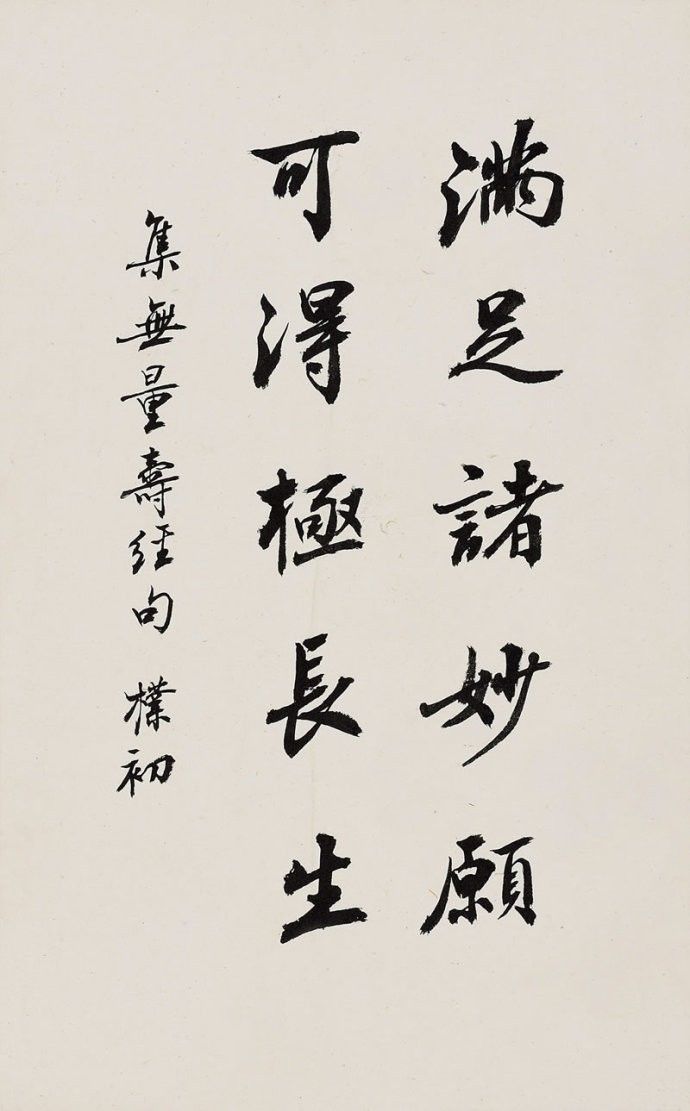 滿足諸妙願
可得極長生
集無量壽经句 樸初